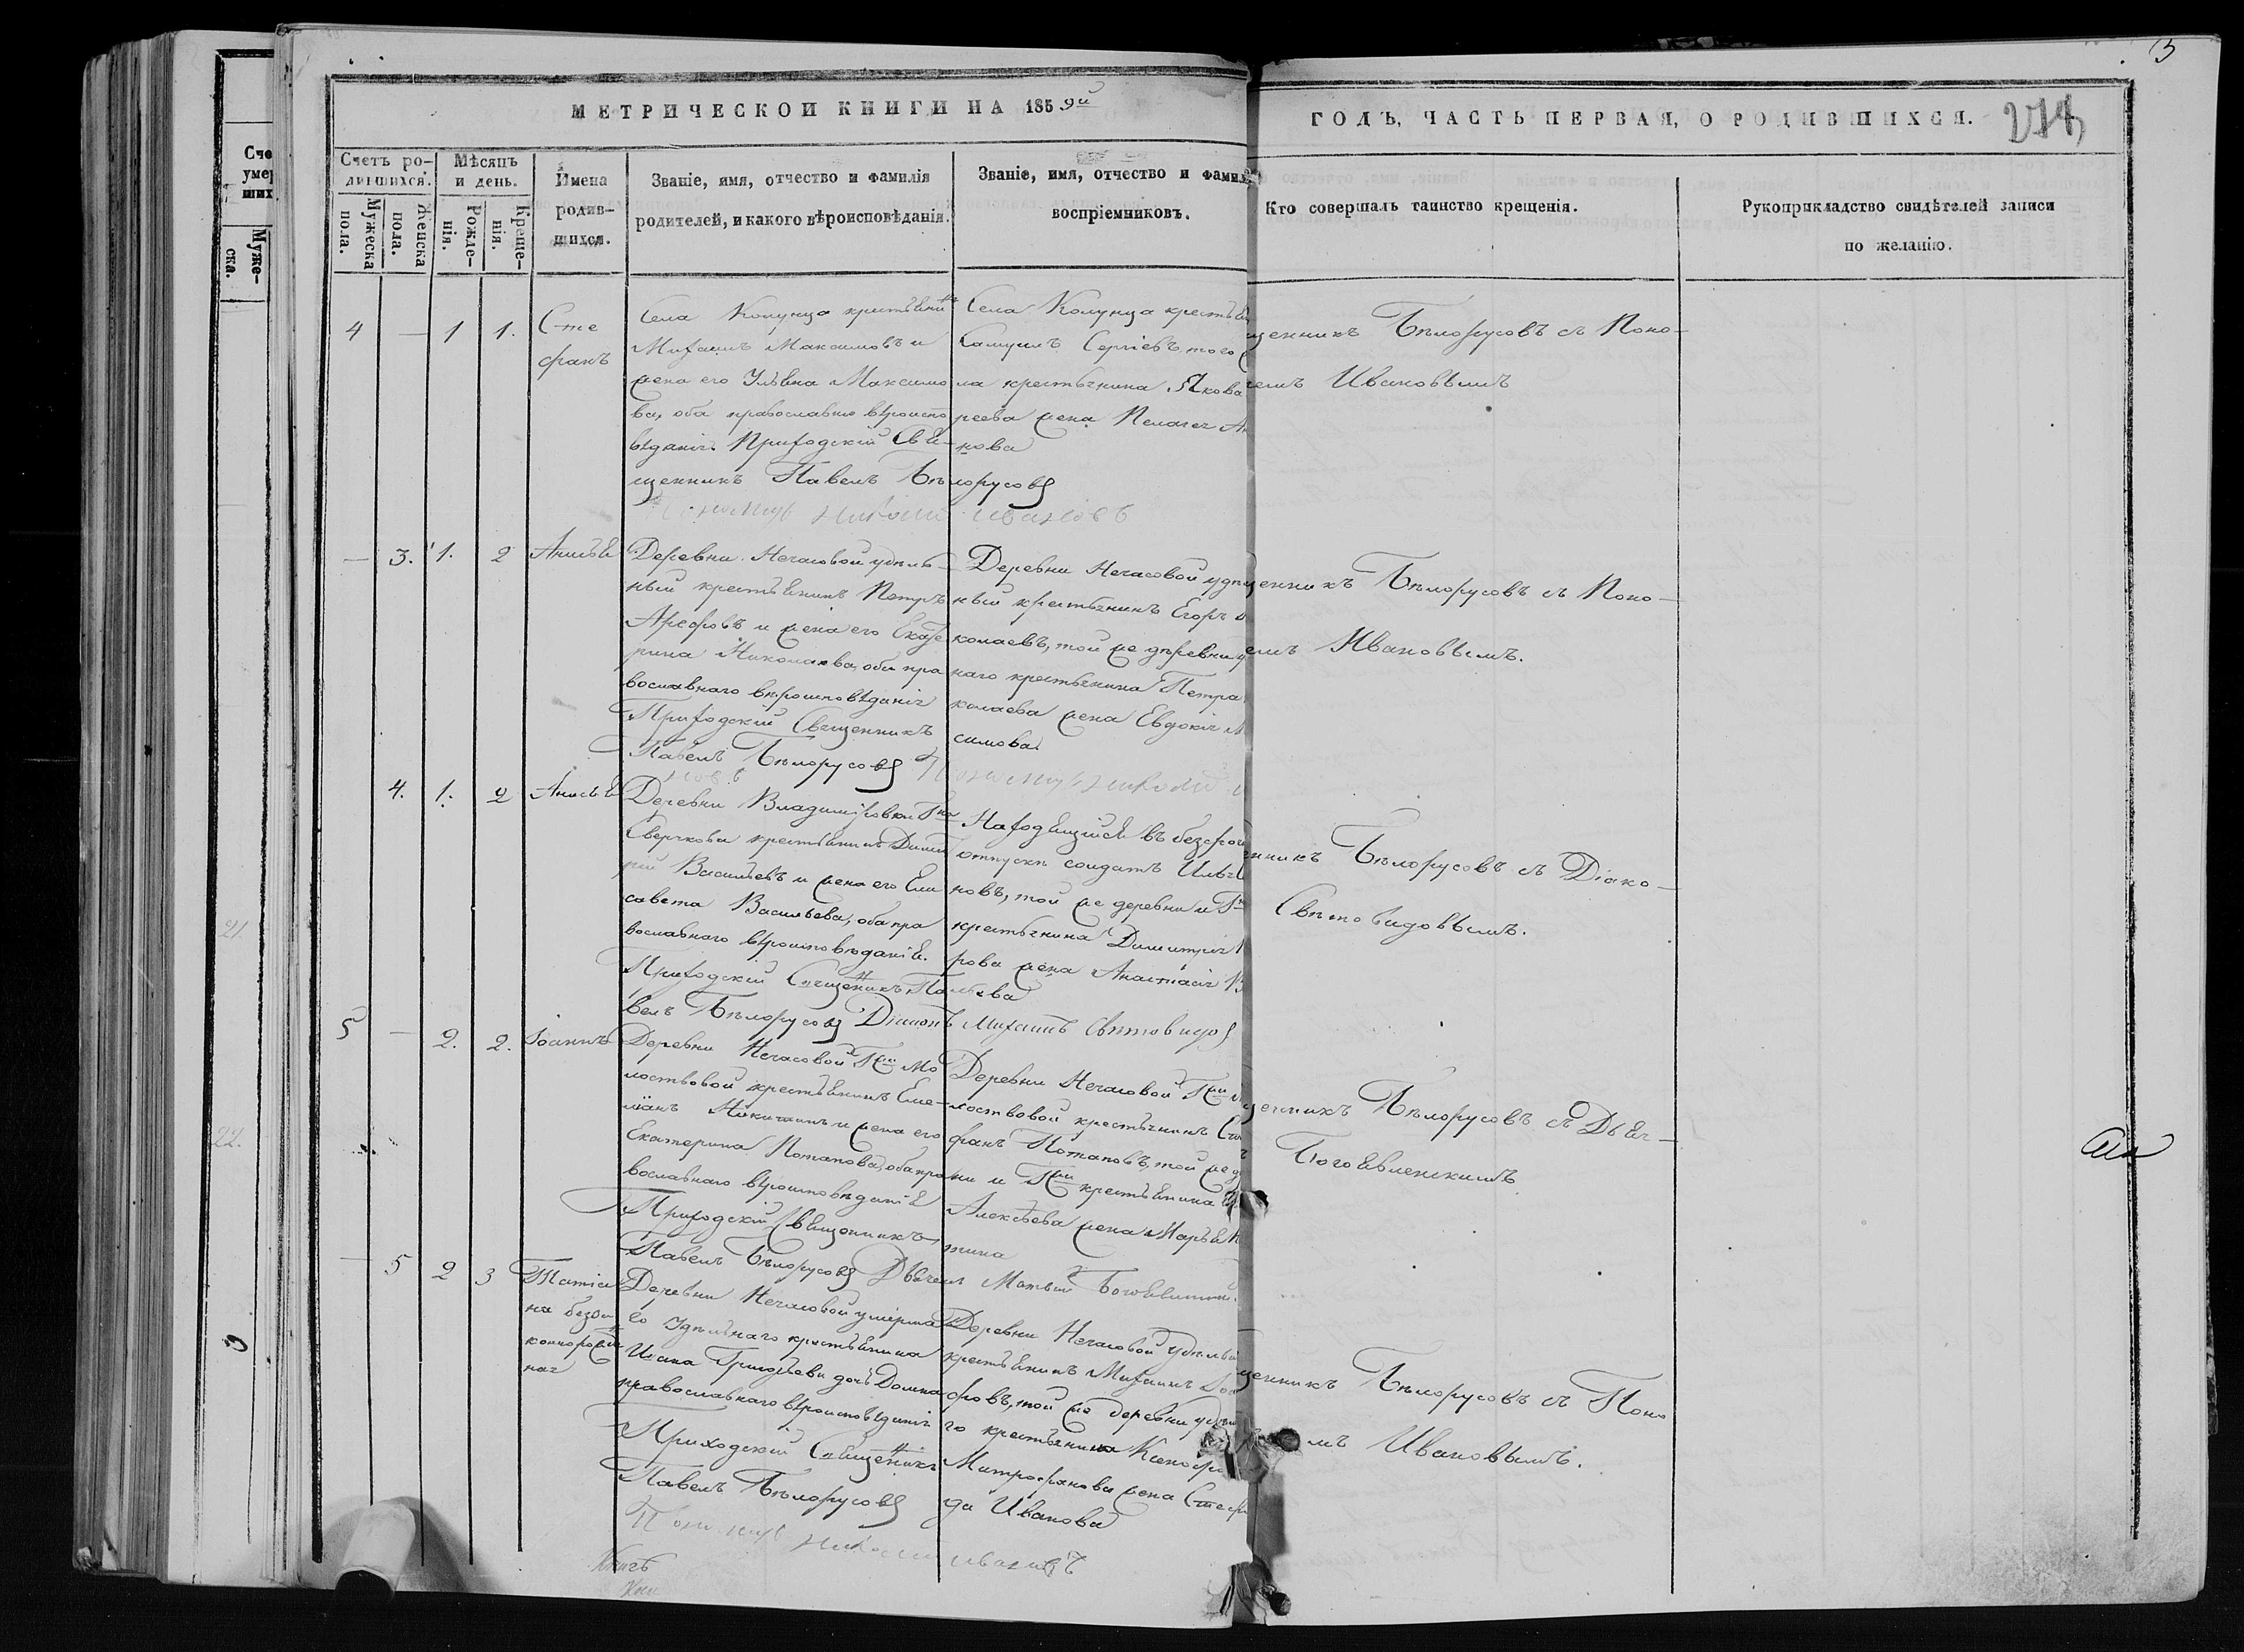 МЕТРИЧЕСКОЙ КНИГИ НА 1859й
ГОДЪ, ЧАСТЬ ПЕРВАЯ, О РОДИВШИХСЯ.
Счетъ ро-
дившихся.
Мужеска
пола.
Женска
пола.
Мѣсяцъ
и день.
Рожде-
нія.
Креще-
нія.
Имена
родив-
шихся.
Званіе, имя, отчество и фамилія
родителей, и какого вѣроисповѣданія.
Званіе, имя, отчество и фамил
воспріемниковъ.
Кто совершалъ таинство крещенія.
Рукоприкладство свидѣтелей записи
по желанію.
4 — 1 1.
Сте
фанъ
Села Колунца крестьянинъ
Михаилъ Максимовъ и
жена его Максимо
ва, оба православно вѣроиспо
вѣданія. Приходскій Свя-
щенникъ Павелъ Бѣлорусовъ
Пономарь Николай Ивановъ
Села Колунца крестья
Самуилъ Сергіевъ, того
ла крестьянина Якова
реева жена Пелагея
нова
щенникъ Бѣлорусовъ съ Поно-
емъ Ивановымъ
— 3. 1. 2
Деревни Нечасовой удѣль-
ный крестьянинъ Петръ
Арефовъ и жена его Екате
рина Николаева, оба пра
вославнаго вѣроисповѣданія
Приходскій Священникъ
Павелъ Бѣлорусовъ Пономарь Николай
Деревни Нечасовой удѣ
ный крестьянинъ Егоръ
колаевъ, той же деревни
наго крестьянина Петра
колаева жена Евдокія
симова.
щенникъ Бѣлорусовъ съ Поно-
емъ Ивановымъ.
4. 1. 2
Деревни Владиміровки Гна
Сверчкова крестьянинъ Дими
рій Васильевъ и жена его Ели
савета Васильева, оба пра
вославнаго вѣроисповѣданія.
Приходскій Священникъ Па
велъ Бѣлорусовъ Діаконъ Михаилъ Свѣтовидовъ
Находящійся въ безсроч
отпуску солдатъ Илья
новъ, той же деревни и Гна
крестьянина Димитрія
рова жена Анастасія
льева
нникъ Бѣлорусовъ съ Діако-
Свѣтовидовымъ.
5 — 2. 2.
Іоаннъ
Деревни Нечасовой Гжи Мо
лоствовой крестьянинъ Еме-
ліанъ Никитинъ и жена его
Екатерина Потапова, оба пра
вославнаго вѣроисповѣданія
Приходскій Священникъ
Павелъ Бѣлорусовъ Дьячекъ Матвей Богоявленскій
Деревни Нечасовой Гжи
лоствовой крестьянинъ Сте
фанъ Потаповъ, той же де
ни и Гжи крестьянина
Алексѣева жена Марья
тина
щенникъ Бѣлорусовъ съ Дьяч-
Богоявленскимъ
— 5 2 3
Татіа
на
Деревни Нечасовой умерша
го Удѣльнаго крестьянина
Ивана Григорьева дочь Домна
православнаго вѣроисповѣданія
Приходскій Священникъ
Павелъ Бѣлорусовъ
Пономарь Николай Ивановъ
Деревни Нечасовой Удѣльн
крестьянинъ Михаилъ
фовъ, той же деревни удѣльн
го крестьянина Ксенофо
Митрофанова жена Стефа
да Иванова
щенникъ Бѣлорусовъ съ Поно
мъ Ивановымъ.
Сче
умер
ших
Муже-
ска.
21
22.